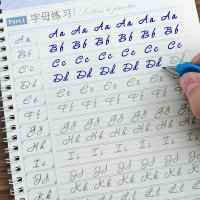 Part.1 字母练习 Letters to practice
Aa Aa Aa Aa
Bb Bb Bb Bb
Cc Cc Cc Cc Cc
Dd Dd Dd Dd Dd
Ee Ee Ee Ee
Ff Ff Ff Ff Ff
Gg Gg Gg Gg Gg
Hh Hh Hh Hh Hh
Ii Ii Ii Ii Ii
Jj Jj Jj Jj Jj
Kk Kk Kk Kk Kk
Ll Ll Ll Ll